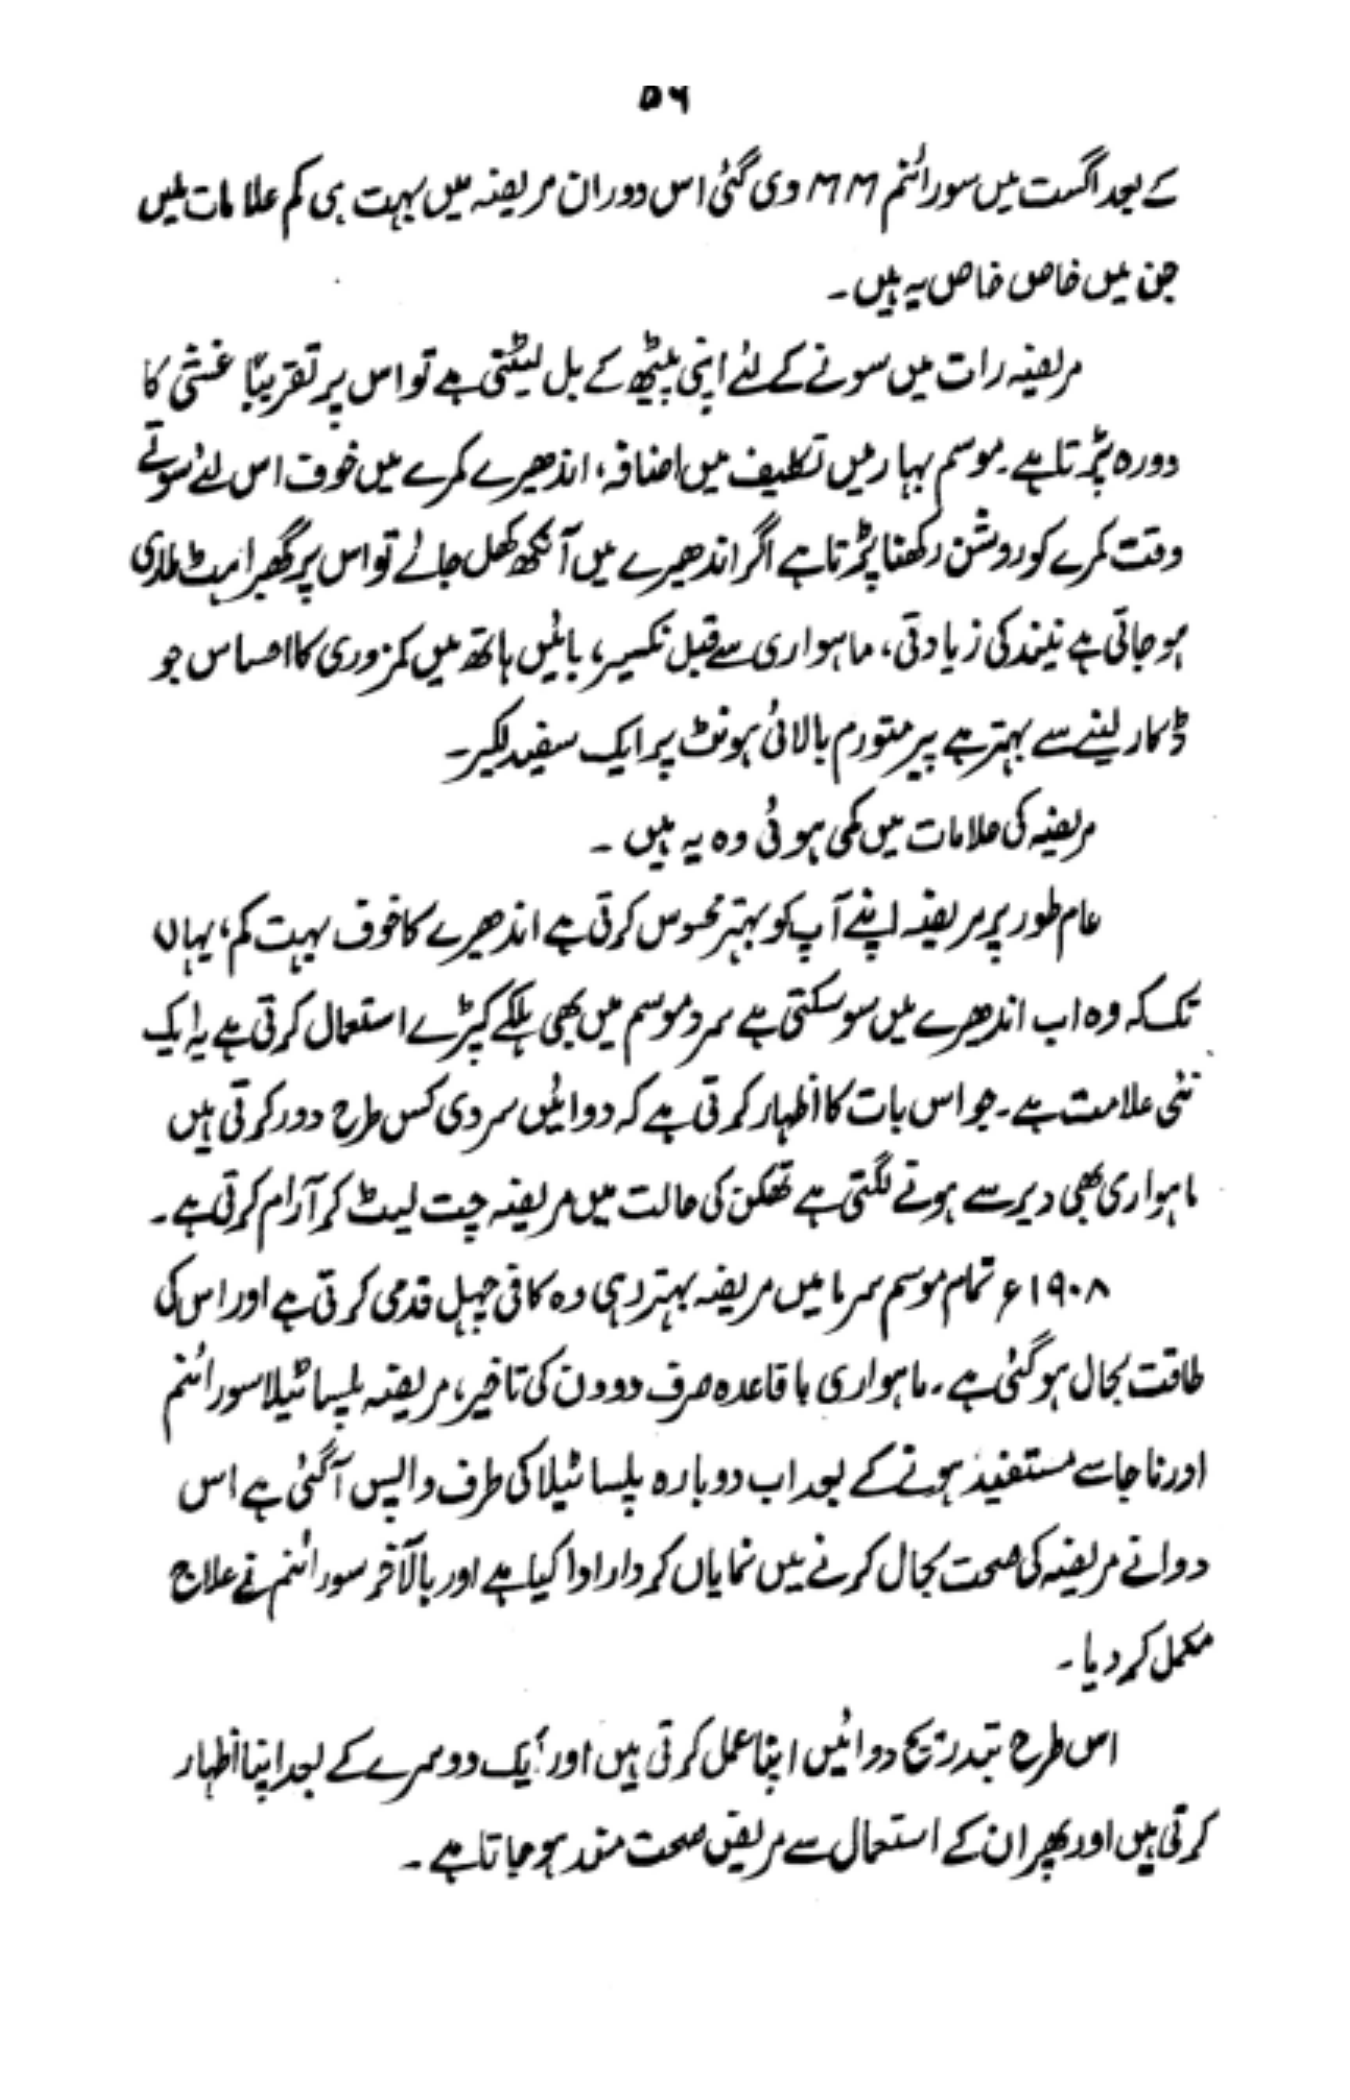 ۵۶
کے بعد اگست میں سورائنم MM دی گئی اس دوران مریضہ میں بہت ہی کم علامات ملیں
جن میں خاص خاص یہ ہیں۔
مریضہ رات میں سونے کے لئے اپنی پیٹھ کے بل لیٹتی ہے تو اس پر تقریباً غشی کا
دورہ پڑتا ہے۔ موسم بہار میں تکلیف میں اضافہ، اندھیرے کمرے میں خوف اس لئے سوتے
وقت کمرے کو روشن رکھنا پڑتا ہے اگر اندھیرے میں آنکھ کھل جائے تو اس پر گھبراہٹ طاری
ہو جاتی ہے نیند کی زیادتی، ماہواری سے قبل نکسیر، بائیں ہاتھ میں کمزوری کا احساس جو
ڈکار لینے سے بہتر ہے پیر متورم بالائی ہونٹ پر ایک سفید لکیر۔
مریضہ کی علامات میں کمی ہوئی وہ یہ ہیں ۔
عام طور پر مریضہ اپنے آپ کو بہتر محسوس کرتی ہے اندھیرے کا خوف بہت کم، یہاں
تک کہ وہ اب اندھیرے میں سو سکتی ہے سرد موسم میں بھی ہلکے کپڑے استعمال کرتی ہے یہ ایک
نئی علامت ہے۔ جو اس بات کا اظہار کرتی ہے کہ دوائیں سردی کس طرح دور کرتی ہیں
ماہواری بھی دیر سے ہونے لگتی ہے تھکن کی حالت میں مریضہ چت لیٹ کر آرام کرتی ہے۔
۱۹۰۸ء تمام موسم سرما میں مریضہ بہتر رہی وہ کافی چہل قدمی کرتی ہے اور اس کی
طاقت بحال ہو گئی ہے۔ ماہواری باقاعدہ صرف دو دن کی تاخیر، مریضہ پلساٹیلا سورائنم
اور ناجا سے مستفید ہونے کے بعد اب دوبارہ پلساٹیلا کی طرف واپس آ گئی ہے اس
دوا نے مریضہ کی صحت بحال کرنے میں نمایاں کردار ادا کیا ہے اور بالآخر سورائنم نے علاج
مکمل کر دیا۔
اس طرح بتدریج دوائیں اپنا عمل کرتی ہیں اور ایک دوسرے کے بعد اپنا اظہار
کرتی ہیں اور پھر ان کے استعمال سے مریض صحت مند ہو جاتا ہے۔